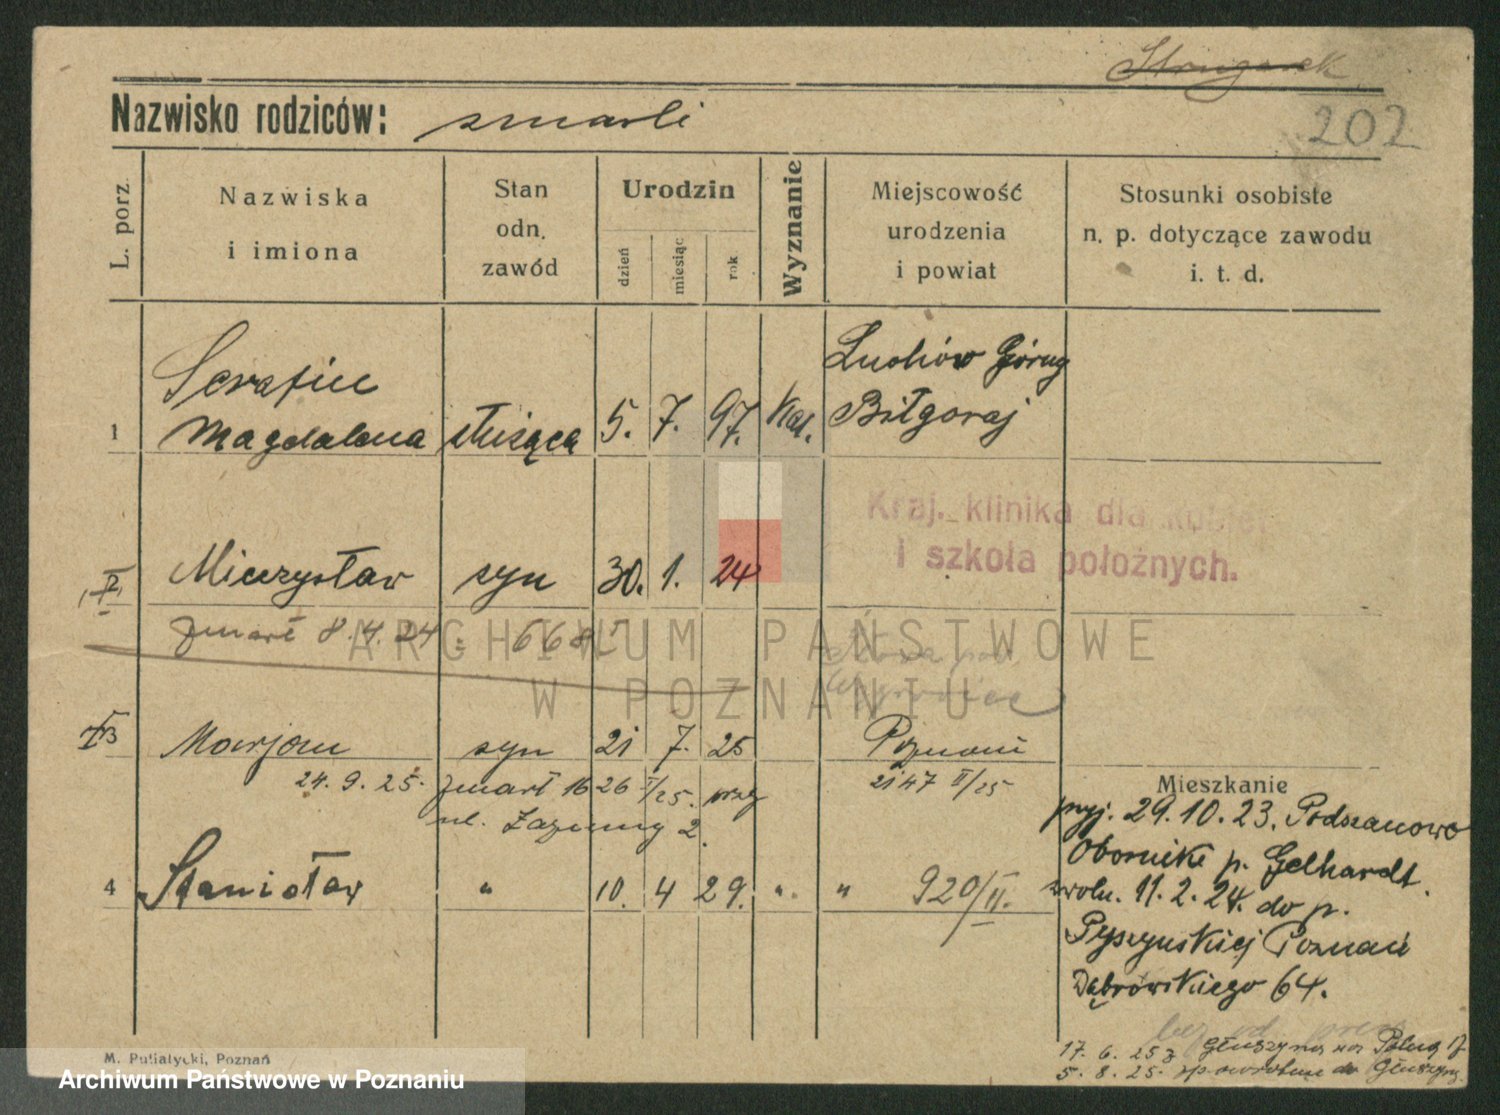 Strugarek
202
Nazwisko rodziców: zmarli
L. porz.
Nazwiska
i imiona
Stan
odn.
zawód
Urodzin
dzień
miesiąc
rok
Wyznanie
Miejscowość
urodzenia
i powiat
Stosunki osobiste
n. p. dotyczące zawodu
i. t. d.
Serafin
Luchów Górny
1 Magdalena służąca 5. 7. 97. Kat. Biłgoraj
Kraj. klinika dla kobiet
i szkoła położnych.
Mieczysław syn 30. 1. 24
zmarł 8.4.24
ARCHIWUM PAŃSTWOWE
W POZNANIU
3 Marjan syn 21 7. 25 Poznań
24.9.25. zmarł 16 26 I/25. przy 2147 II/25
ul. 2.
4 Stanisław " 10. 4 29. " " 920/II.
Mieszkanie
przyj. 29.10.23. Podszanowo
Obornike p. Gelhardt.
zwoln. 11.2.24. do p.
Pyszyńskiej Poznań
Dąbrówskiego 64.
17. 6. 25 z Głuszyna
5. 8. 25. z powrotem do Głuszyny
M. Putiatycki, Poznań
Archiwum Państwowe w Poznaniu